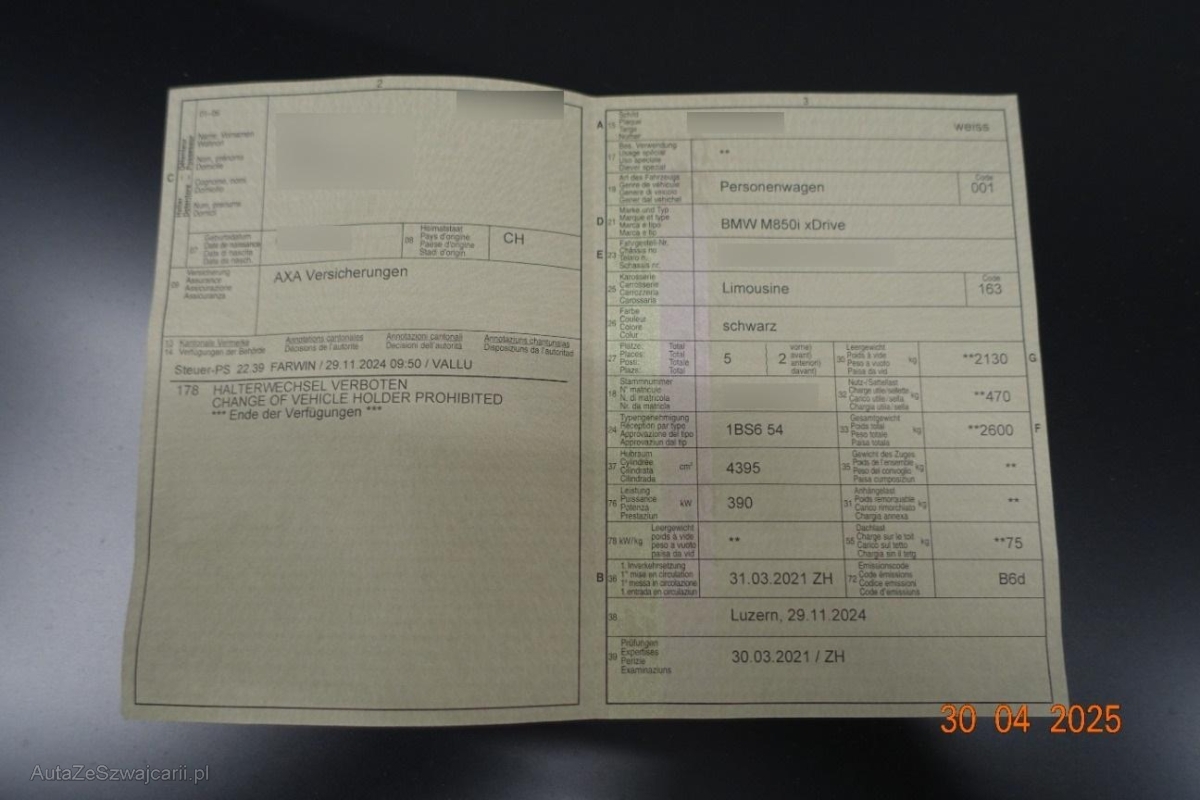 2
01-06
Name, Vornamen
Wohnort
Nom, prénoms
Domicile
Cognome, nomi
Domicilio
Num, prenums
Domicil
C
07
Geburtsdatum
Date de naissance
Data di nascita
Data da nasch.
08
Heimatstaat
Pays d'origine
Paese d'origine
Stadi d'origin
CH
09
Versicherung
Assurance
Assicurazione
Assicuranza
AXA Versicherungen
13 Kantonale Vermerke
14 Verfügungen der Behörde
Annotations cantonales
Décisions de l'autorité
Annotazioni cantonali
Decisioni dell'autorità
Annotaziuns chantunalas
Disposiziuns da l'autoritad
Steuer-PS 22.39 FARWIN / 29.11.2024 09:50 / VALLU
178 HALTERWECHSEL VERBOTEN
CHANGE OF VEHICLE HOLDER PROHIBITED
*** Ende der Verfügungen ***
3
A 15
Schild
Plaque
Targa
Numer
weiss
17
Bes. Verwendung
Usage spécial
Uso speciale
Diever spezial
**
19
Art des Fahrzeugs
Genre de véhicule
Genere di veicolo
Gener dal vehichel
Personenwagen
Code
001
D 21
Marke und Typ
Marque et type
Marca e tipo
Marca e tip
BMW M850i xDrive
E 23
Fahrgestell-Nr.
Châssis no
Telaio n.
Schassis nr.
25
Karosserie
Carrosserie
Carrozzeria
Carossaria
Limousine
Code
163
26
Farbe
Couleur
Colore
Colur
schwarz
27
Plätze: Total
Places: Total
Posti: Totale
Plazs: Total
5
2
vorne)
avant)
anteriori)
davant)
30
Leergewicht
Poids à vide
Peso a vuoto
Paisa da vid
kg
**2130
G
18
Stammnummer
N° matricule
N. di matricola
Nr. da matricla
32
Nutz-/Sattellast
Charge utile/sellette
Carico utile/sella
Chargia utila/sella
kg
**470
24
Typengenehmigung
Réception par type
Approvazione del tipo
Approvaziun dal tip
1BS6 54
33
Gesamtgewicht
Poids total
Peso totale
Paisa totala
kg
**2600
F
37
Hubraum
Cylindrée
Cilindrata
Cilindrada
cm³
4395
35
Gewicht des Zuges
Poids de l'ensemble
Peso del convoglio
Paisa cumposiziun
kg
**
76
Leistung
Puissance
Potenza
Prestaziun
kW
390
31
Anhängelast
Poids remorquable
Carico rimorchiato
Chargia annexa
kg
**
78 kW/kg
Leergewicht
poids à vide
peso a vuoto
paisa da vid
**
55
Dachlast
Charge sur le toit
Carico sul tetto
Chargia sin il tetg
kg
**75
B 36
1. Inverkehrsetzung
1re mise en circulation
1a messa in circolazione
1. entrada en circulaziun
31.03.2021 ZH
72
Emissionscode
Code émissions
Codice emissioni
Code d'emissiuns
B6d
38
Luzern, 29.11.2024
39
Prüfungen
Expertises
Perizie
Examinaziuns
30.03.2021 / ZH
30 04 2025
AutaZeSzwajcarii.pl